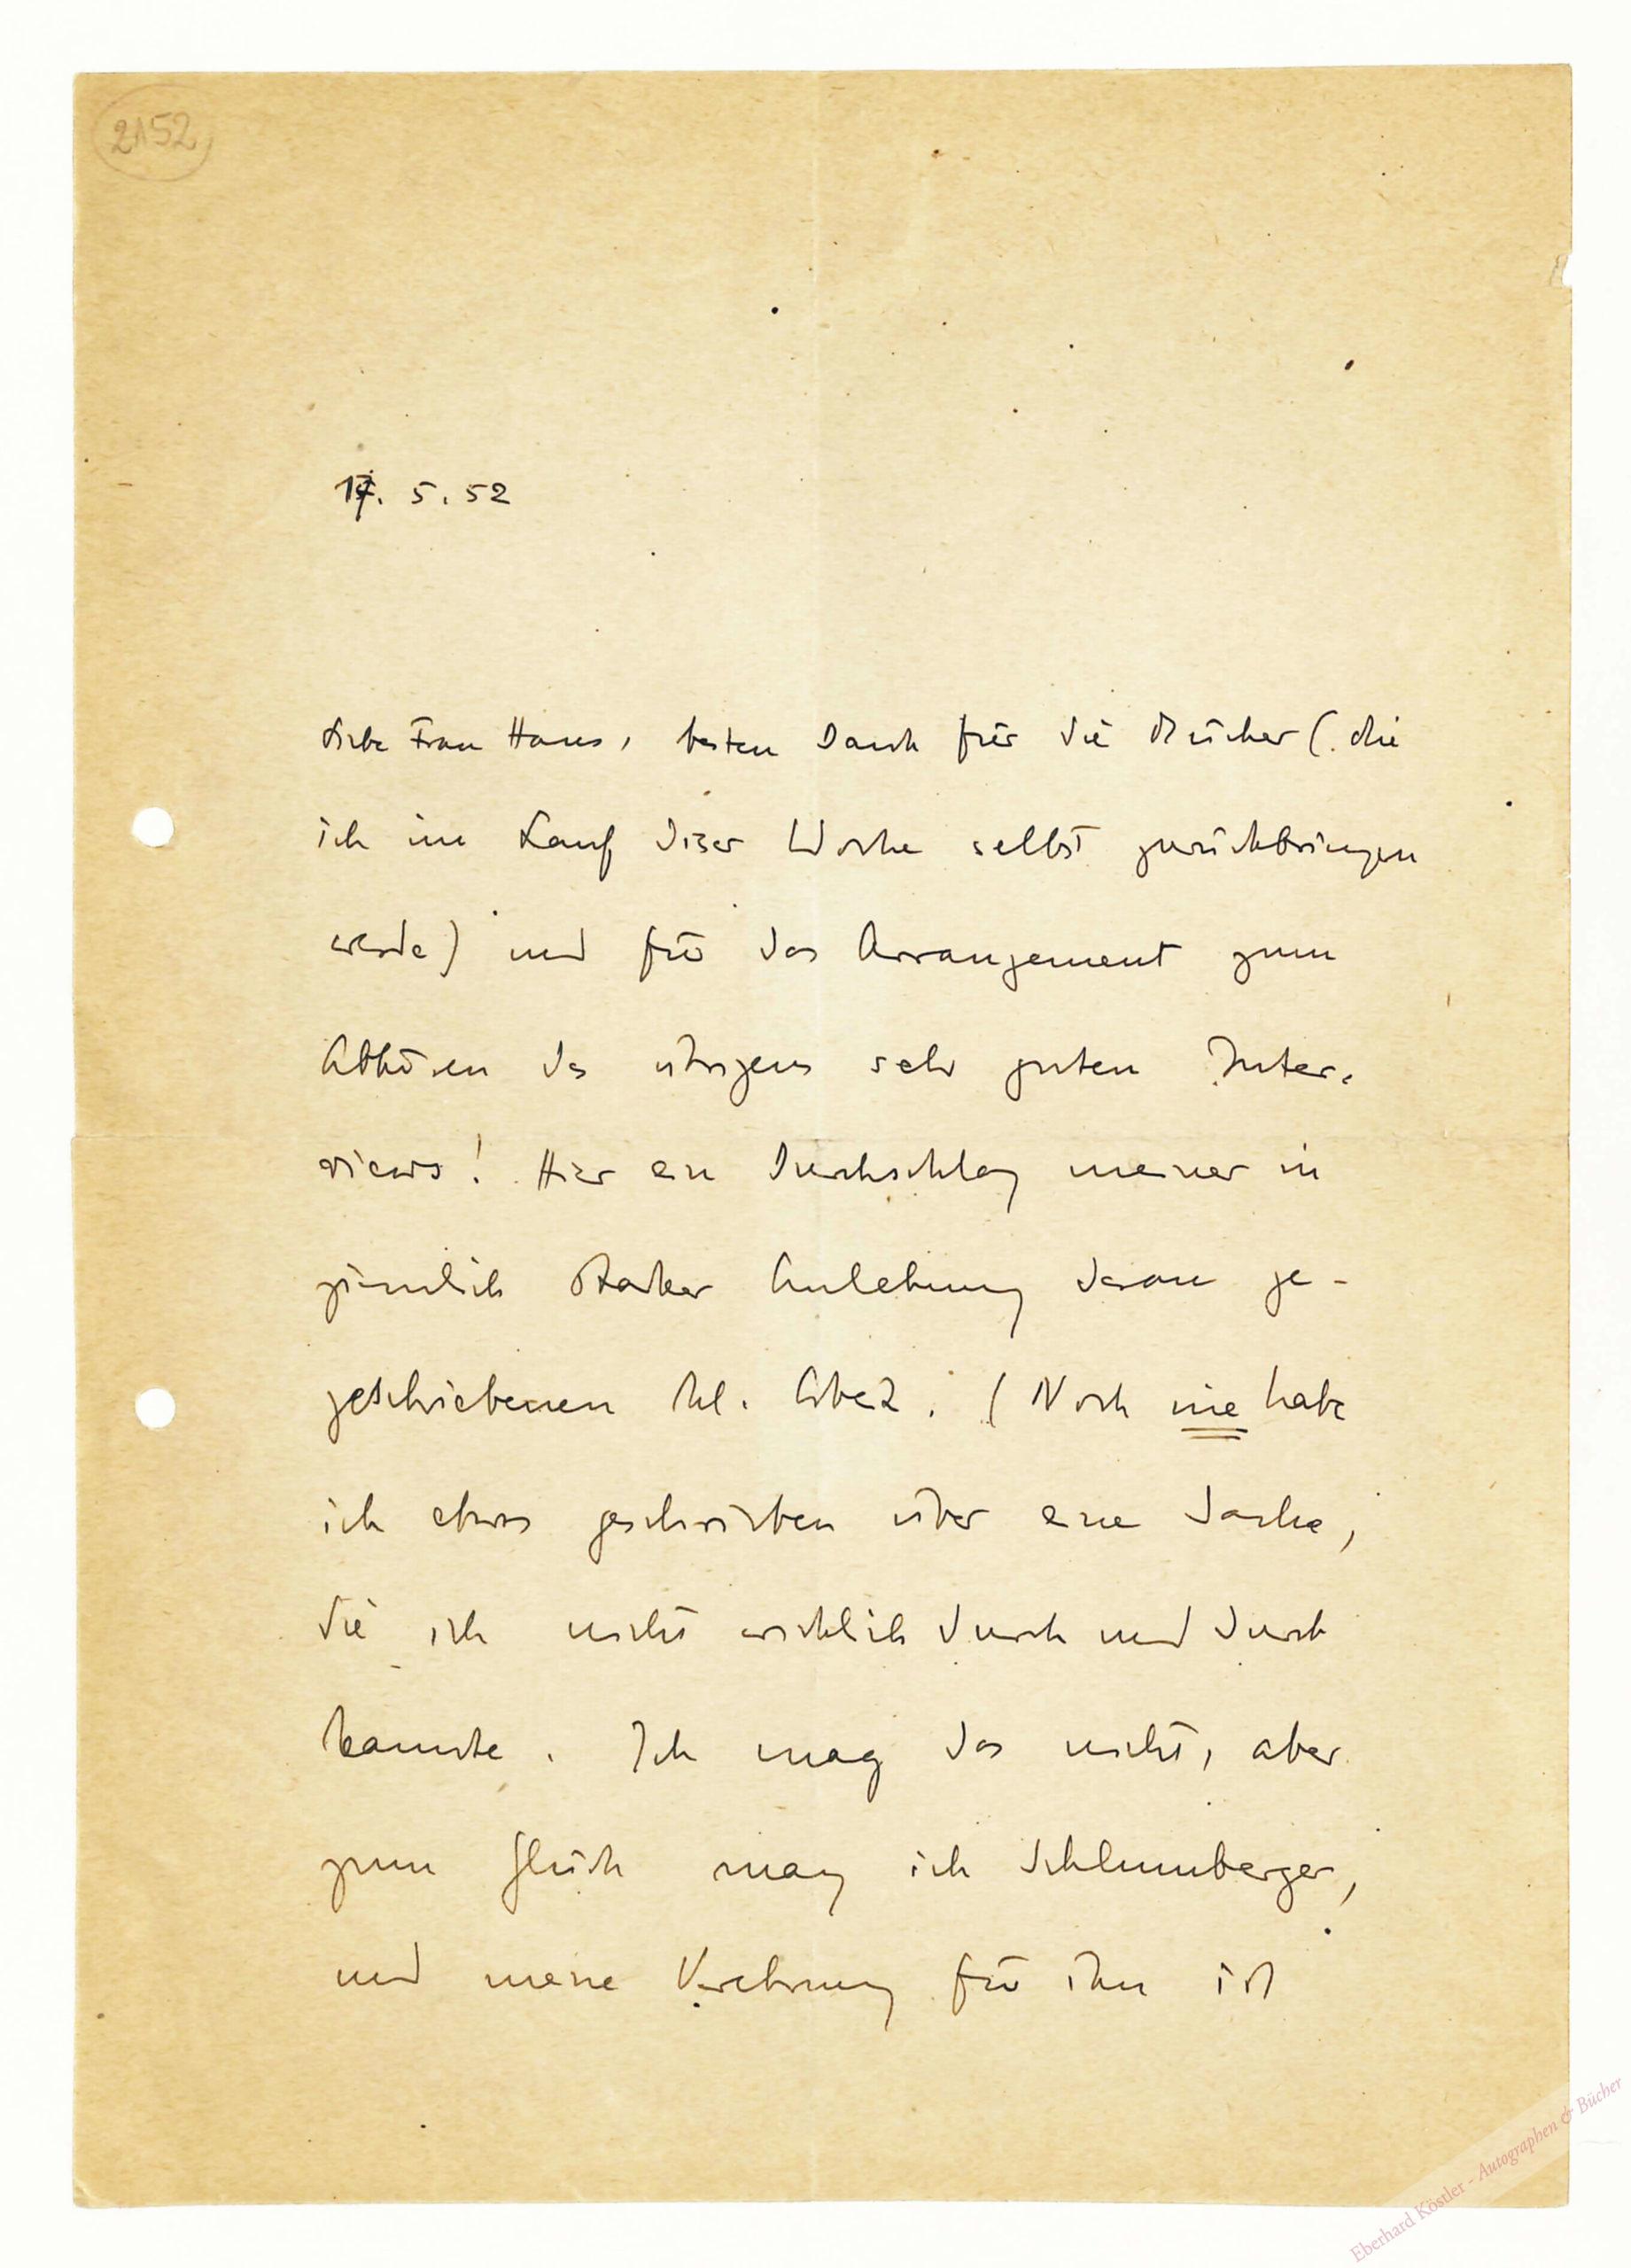 2152
17. 5. 52
Liebe Frau Haus, besten Dank für die Bücher (die
ich im Lauf dieser Woche selbst zurückbringen
werde) und für das Arrangement zum
Abhören des übrigens sehr guten Inter-
views! Hier ein Durchschlag meiner in
ziemlich starker Anlehnung daran ge-
geschriebenen kl. Arbeit. (Noch nie habe
ich etwas geschrieben über eine Sache,
die ich nicht wirklich durch und durch
kannte. Ich mag das nicht, aber
zum Glück mag ich Schlumberger,
und meine Verehrung für ihn ist
Eberhard Köstler - Autographen & Bücher